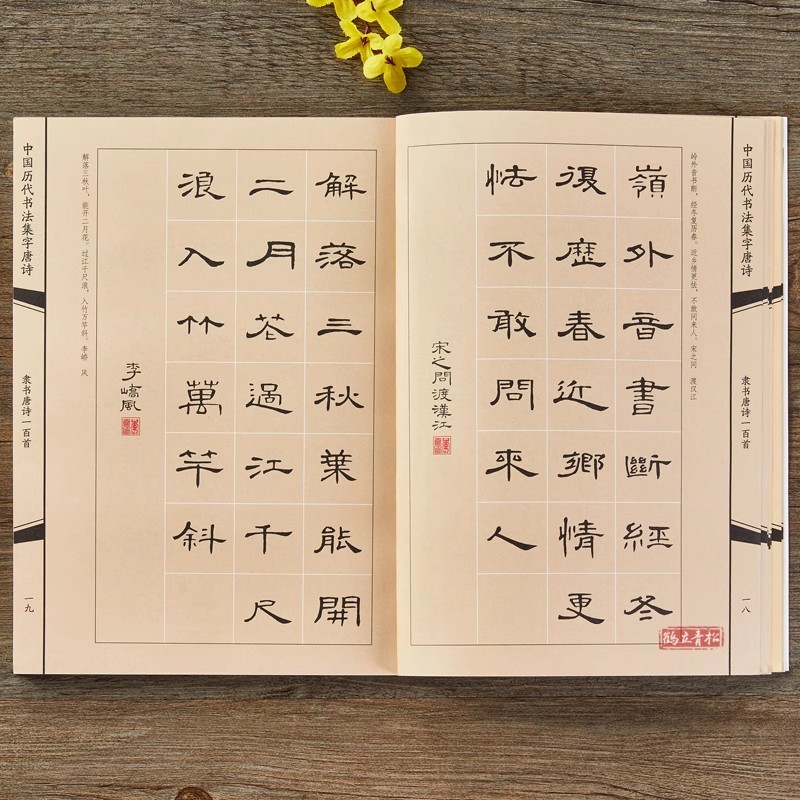 中国历代书法集字唐诗
隶书唐诗一百首
一八
岭外音书断，经冬复历春。近乡情更怯，不敢问来人。宋之问 渡汉江
嶺外音書斷經冬
復歷春近鄉情更
怯不敢問來人
宋之問渡漢江
解落三秋葉能開
二月花過江千尺
浪入竹萬竿斜
李嶠風
解落三秋叶，能开二月花。过江千尺浪，入竹万竿斜。李峤 风
中国历代书法集字唐诗
隶书唐诗一百首
一九
鹤立青松